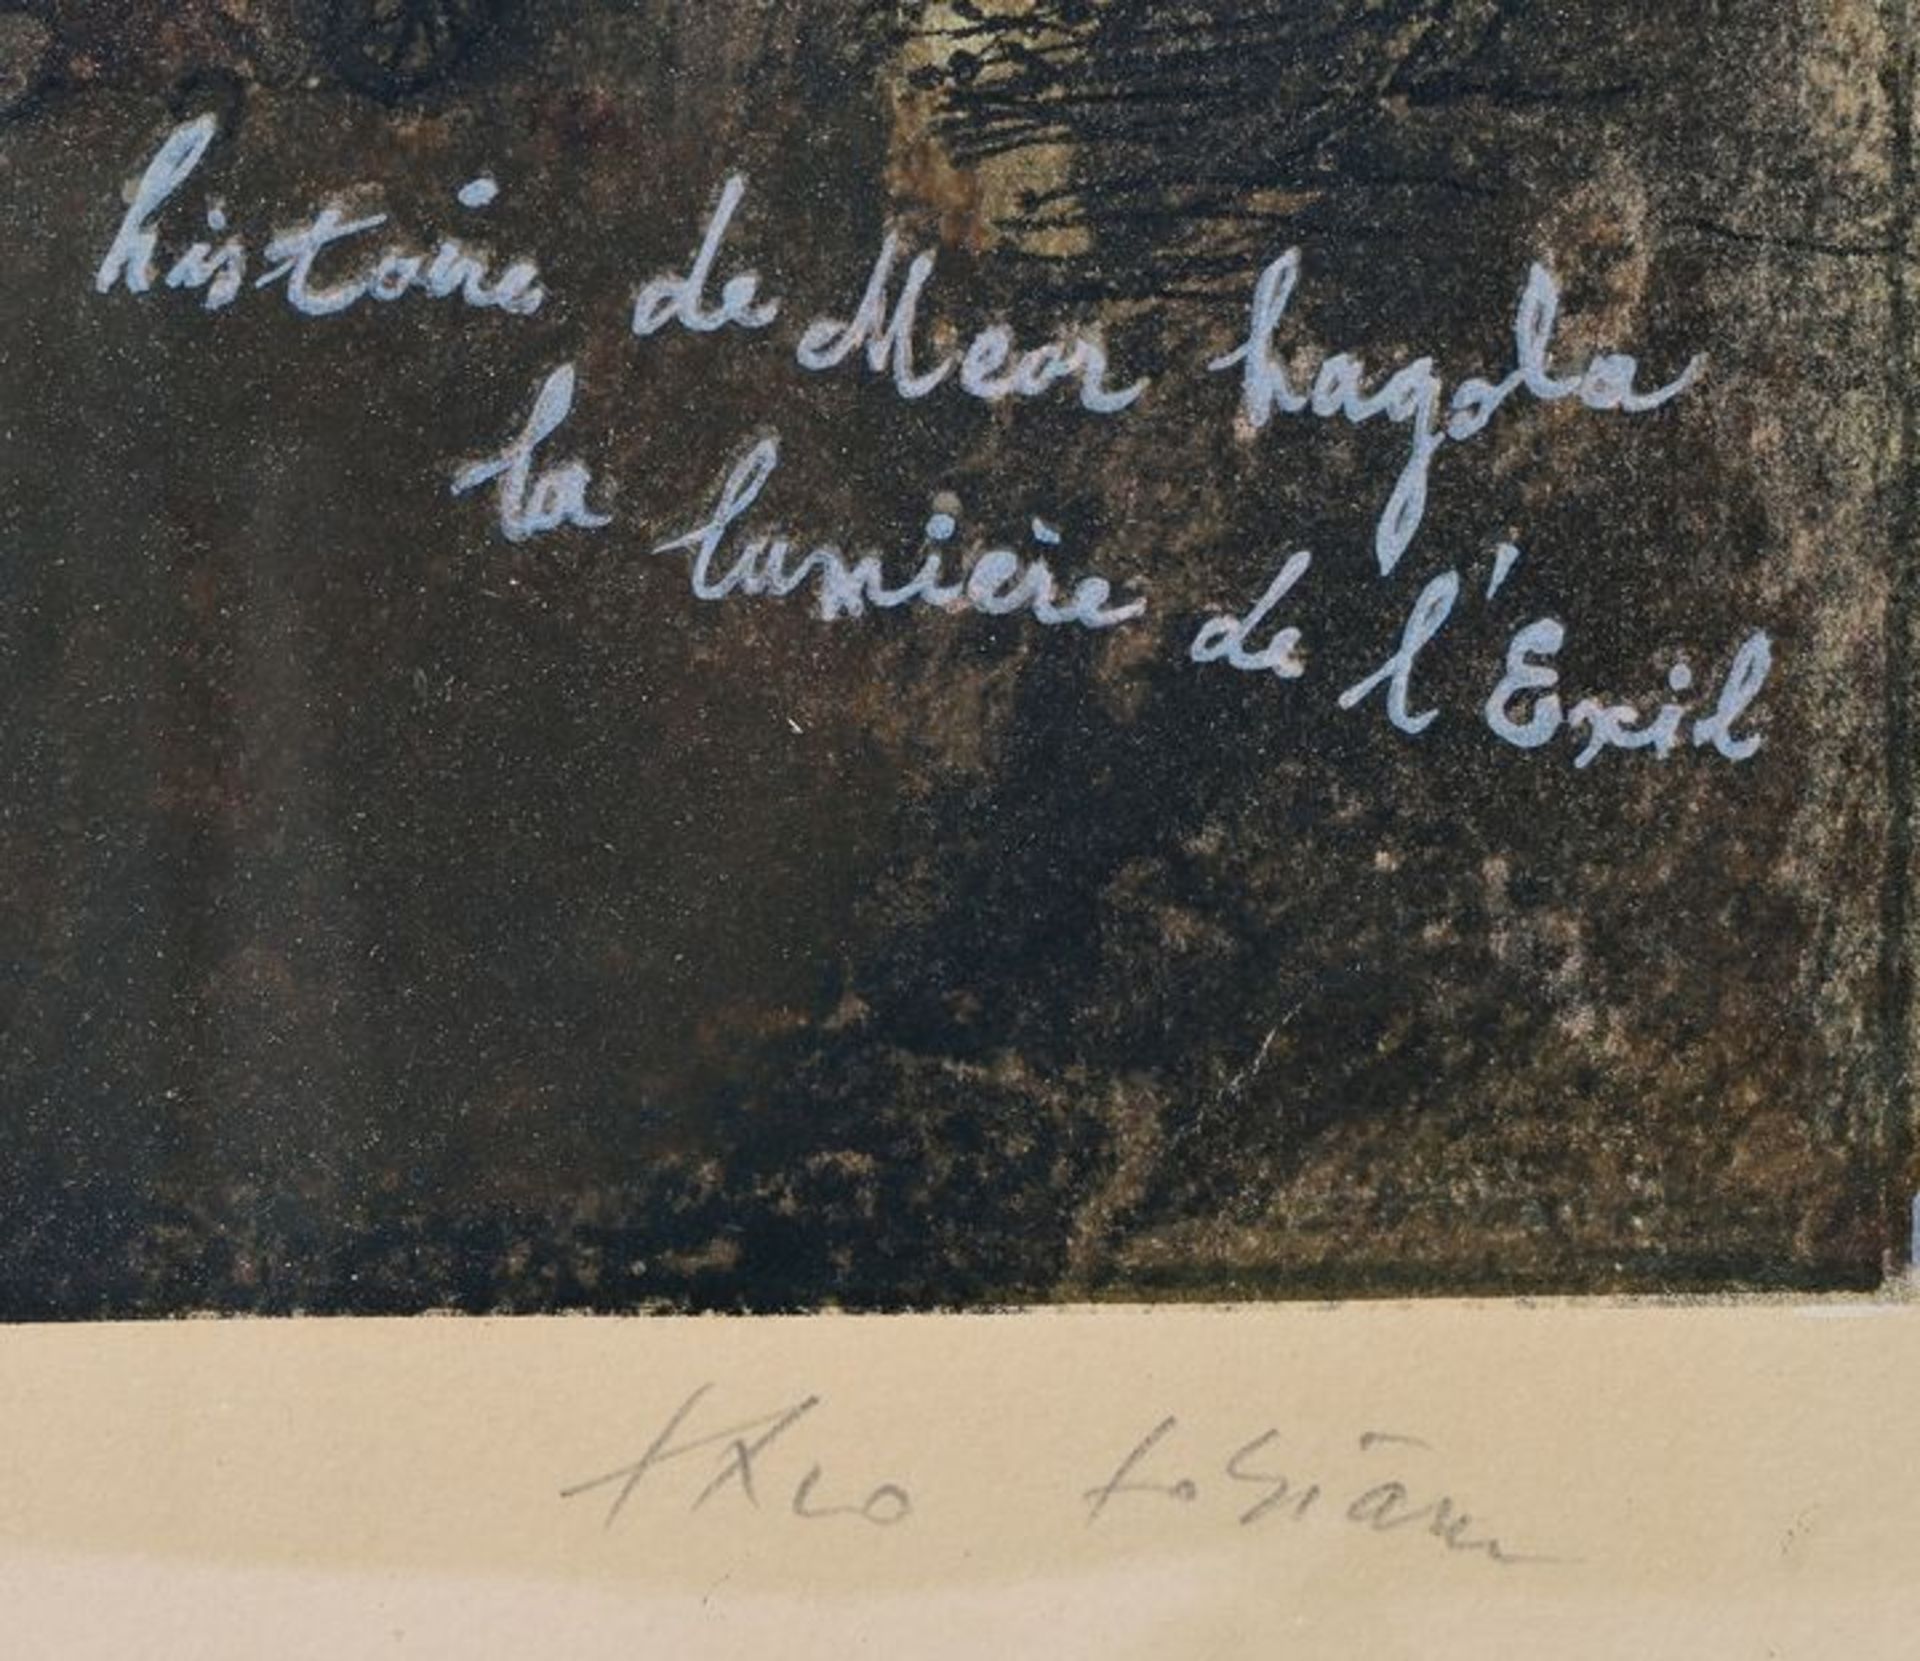 histoire de Meor hagola
la lumière de l'Exil
théo tobiasse